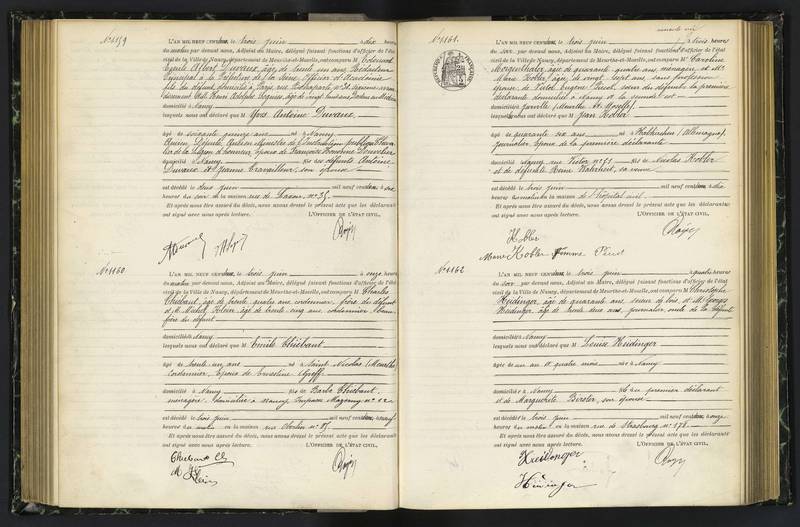 N° 1159
L'AN MIL NEUF CENT deux, le trois juin à dix heures
du matin par devant nous, Adjoint au Maire, délégué faisant fonctions d'officier de l'état
civil de la Ville de Nancy, département de Meurthe-et-Moselle, ont comparu M. Edouard
Emile Albert âge de trente un ans, Rédacteur
Principal à la Préfecture de la Seine, Officier d'Académie
fils du défunt, domicilié à Paris, rue Bonaparte
Adolphe âge de vingt huit ans, Docteur en Médecine
domicilié à Nancy
lesquels nous ont déclaré que M. Yves Antoine Duvaux
âgé de soixante quinze ans né à Nancy
Ancien Député, Ancien Ministre de l'Instruction publique, Chevalier
de la Légion d'honneur, époux de Françoise
domicilié à Nancy fils des défunts Antoine
Duvaux et Jeanne Travailleur, son épouse
est décédé le deux juin mil neuf cent deux, à six
heures du soir en la maison rue de n° 35
Et après nous être assuré du décès, nous avons dressé le présent acte que les déclarants
ont signé avec nous après lecture. L'OFFICIER DE L'ÉTAT CIVIL,
N° 1160
L'AN MIL NEUF CENT deux, le trois juin à onze heures
du matin par devant nous, Adjoint au Maire, délégué faisant fonctions d'officier de l'état
civil de la Ville de Nancy, département de Meurthe-et-Moselle, ont comparu M. Charles
Thiébaut, âgé de trente quatre ans, cordonnier, frère du défunt
et M. Michel Klein âgé de trente cinq ans, cordonnier, beau
frère du défunt
domiciliés à Nancy
lesquels nous ont déclaré que M. Emile Thiébaut
âgé de trente un ans né à Saint Nicolas (Meurthe)
cordonnier, époux de Ernestine
domicilié à Nancy fils de Barbe Thiébaut,
ménagère, domiciliée à Nancy, Impasse n° 12
est décédé le trois juin mil neuf cent deux, à neuf
heures du matin en la maison rue Oberlin n° 85
Et après nous être assuré du décès, nous avons dressé le présent acte que les déclarants
ont signé avec nous après lecture. L'OFFICIER DE L'ÉTAT CIVIL,
Thiébaut Ch
M Klein
N° 1161
L'AN MIL NEUF CENT deux, le trois juin à trois heures
du soir par devant nous, Adjoint au Maire, délégué faisant fonctions d'officier de l'état
civil de la Ville de Nancy, département de Meurthe-et-Moselle, ont comparu Me Caroline
âgée de quarante quatre ans, ménagère, et Me
Marie Kobler, âgée de vingt sept ans, sans profession
épouse de Victor Eugène sœur du défunt, la première
déclarante domiciliée à Nancy et la seconde est
domiciliée à Joinville (Meurthe et Moselle)
lesquels nous ont déclaré que M. Jean Kobler
âgé de quarante six ans né à (Allemagne)
journalier, époux de la première déclarante
domicilié à Nancy, rue Victor n° 51 fils de Nicolas Kobler
et de défunte Anne sa veuve
est décédé le trois juin mil neuf cent deux, à dix
heures du matin en la maison de l'hôpital civil
Et après nous être assuré du décès, nous avons dressé le présent acte que les déclarants
ont signé avec nous après lecture. L'OFFICIER DE L'ÉTAT CIVIL,
Kobler
Marie Kobler Femme
N° 1162
L'AN MIL NEUF CENT deux, le trois juin à quatre heures
du soir par devant nous, Adjoint au Maire, délégué faisant fonctions d'officier de l'état
civil de la Ville de Nancy, département de Meurthe-et-Moselle, ont comparu M. Christophe
Heidinger, âgé de quarante ans, scieur de bois, et M. Georges
Heidinger, âgé de trente deux ans, journalier, oncle de la défunte
domiciliés à Nancy
lesquels nous ont déclaré que M. Louise Heidinger
âgée de un an et quatre mois née à Nancy
domiciliée à Nancy fille du premier déclarant
et de Marguerite son épouse
est décédée le trois juin mil neuf cent deux, à onze
heures du matin en la maison rue de Strasbourg n° 178
Et après nous être assuré du décès, nous avons dressé le présent acte que les déclarants
ont signé avec nous après lecture. L'OFFICIER DE L'ÉTAT CIVIL,
Heidinger
Heidinger